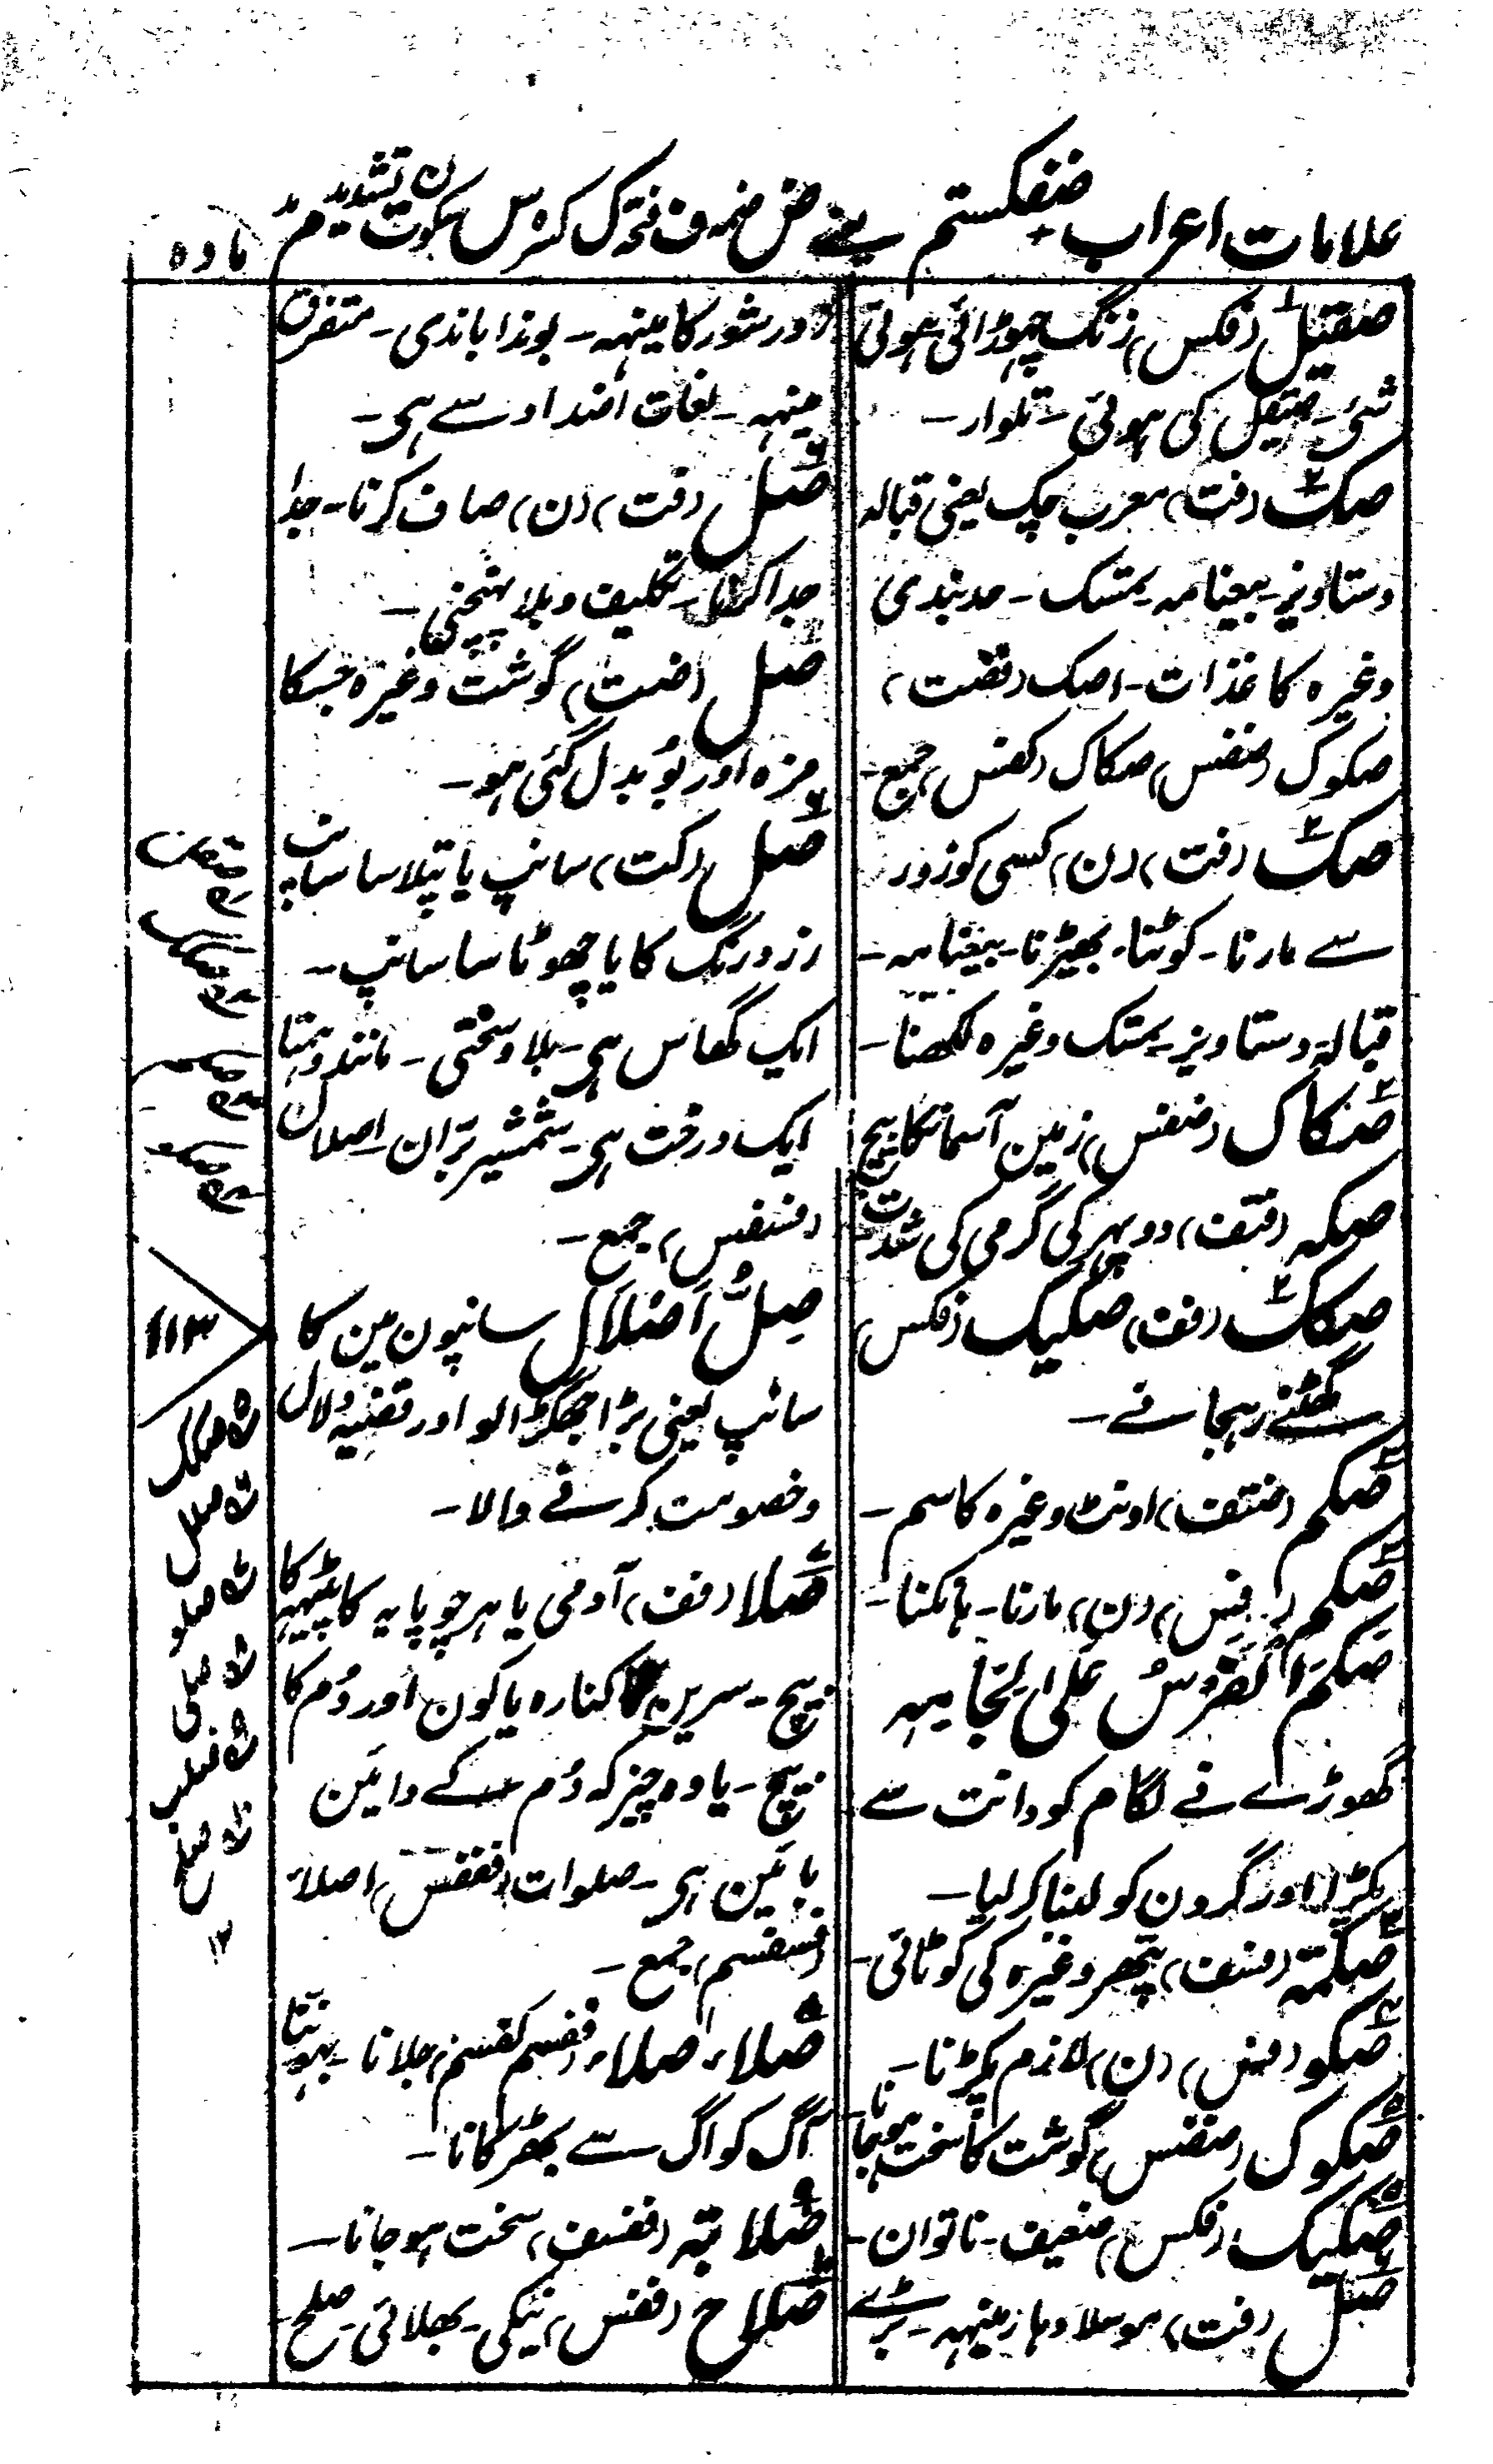 علامات اعراب ضفکستم یعنے ض ضمہ ف فتحہ ک کسرہ س سکون ت تشدید م مد
مادہ
صقیل (فکس) زنگ چھوڑائی ہوئی
شی۔ صیقل کی ہوئی۔ تلوار۔
صک (فت) معرب چک یعنی قبالہ
دستاویز۔ بیعنامہ۔ تمسک۔ حد بندی
وغیرہ کاغذات۔ اصک (فضت)
صکوک (ضفس) صکاک (کفس) جمع۔
صک (فت) (ن) کسی کو زور
سے مارنا۔ کوٹنا۔ بھیڑنا۔ بیعنامہ۔
قبالہ دستاویز۔ تمسک وغیرہ لکھنا۔
صکاک (ضفس) زمین آسمانکا بیچ
صکہ (فتف) دوپہر کی گرمی کی شدت
صکاک (فف) صکیک (فکس)
گھٹنے رہجانے۔
صکم (ضتف) اونٹ وغیرہ کا سم۔
صکم (فس) (ن) مارنا۔ ہانکنا۔
صَکَمَ الْفَرَسُ عَلٰی لِجَامِہٖ
گھوڑے نے لگام کو دانت سے
پکڑ لیا اور گردن کو لنبا کر لیا۔
صکمتہ (فسف) پتھر وغیرہ کی کوٹائی۔
صکو (فس) (ن) لازم پکڑنا۔
صکوک (ضفس) گوشت کا سخت ہوجانا۔
صکیک (فکس) ضعیف۔ ناتوان۔
صل (فت) موسلا دہار مینہہ۔ بڑے
زور شور کا مینہہ۔ بوندا باندی۔ متفرق
مینہہ۔ لغات اضداد سے ہی۔
صل (فت) (ن) صاف کرنا۔ جدا
جدا کرنا۔ تکلیف و بلا پہنچنی۔
صل (ضت) گوشت وغیرہ جسکا
مزہ اور بُو بدل گئی ہو۔
صل (کت) سانپ یا پتلا سا سانپ
زرد رنگ کا یا چھوٹا سا سانپ۔
ایک گھاس ہی۔ بلا و سختی۔ مانند و ہمتا
ایک درخت ہی۔ شمشیر برّان۔ اصلال
(فسفس) جمع۔
صِلُّ اَصْلَال سانپون مین کا
سانپ یعنی بڑا جھگڑالو اور قضیہ دلال
و خصومت کرنے والا۔
صلا (فف) آدمی یا ہر چوپایہ کا پیٹھہ کا
بیچ۔ سرین کا کنارہ یا کون اور دُم کا
بیچ۔ یا وہ چیز کہ دُم کے دائین
بائین ہی۔ صلوات (ففقس) اصلاء
(فسفسم) جمع۔
صلاء، صلاء (ففسم کفسم) جلانا۔
آگ کو اگ سے بھڑکانا۔
صلابتہ (ففسف) سخت ہو جانا۔
صلاح (ففس) نیکی۔ بھلائی۔ صلح۔
۱۱۳
صکک
صلل
صلو
صلی
صلب
صلح
۱۲